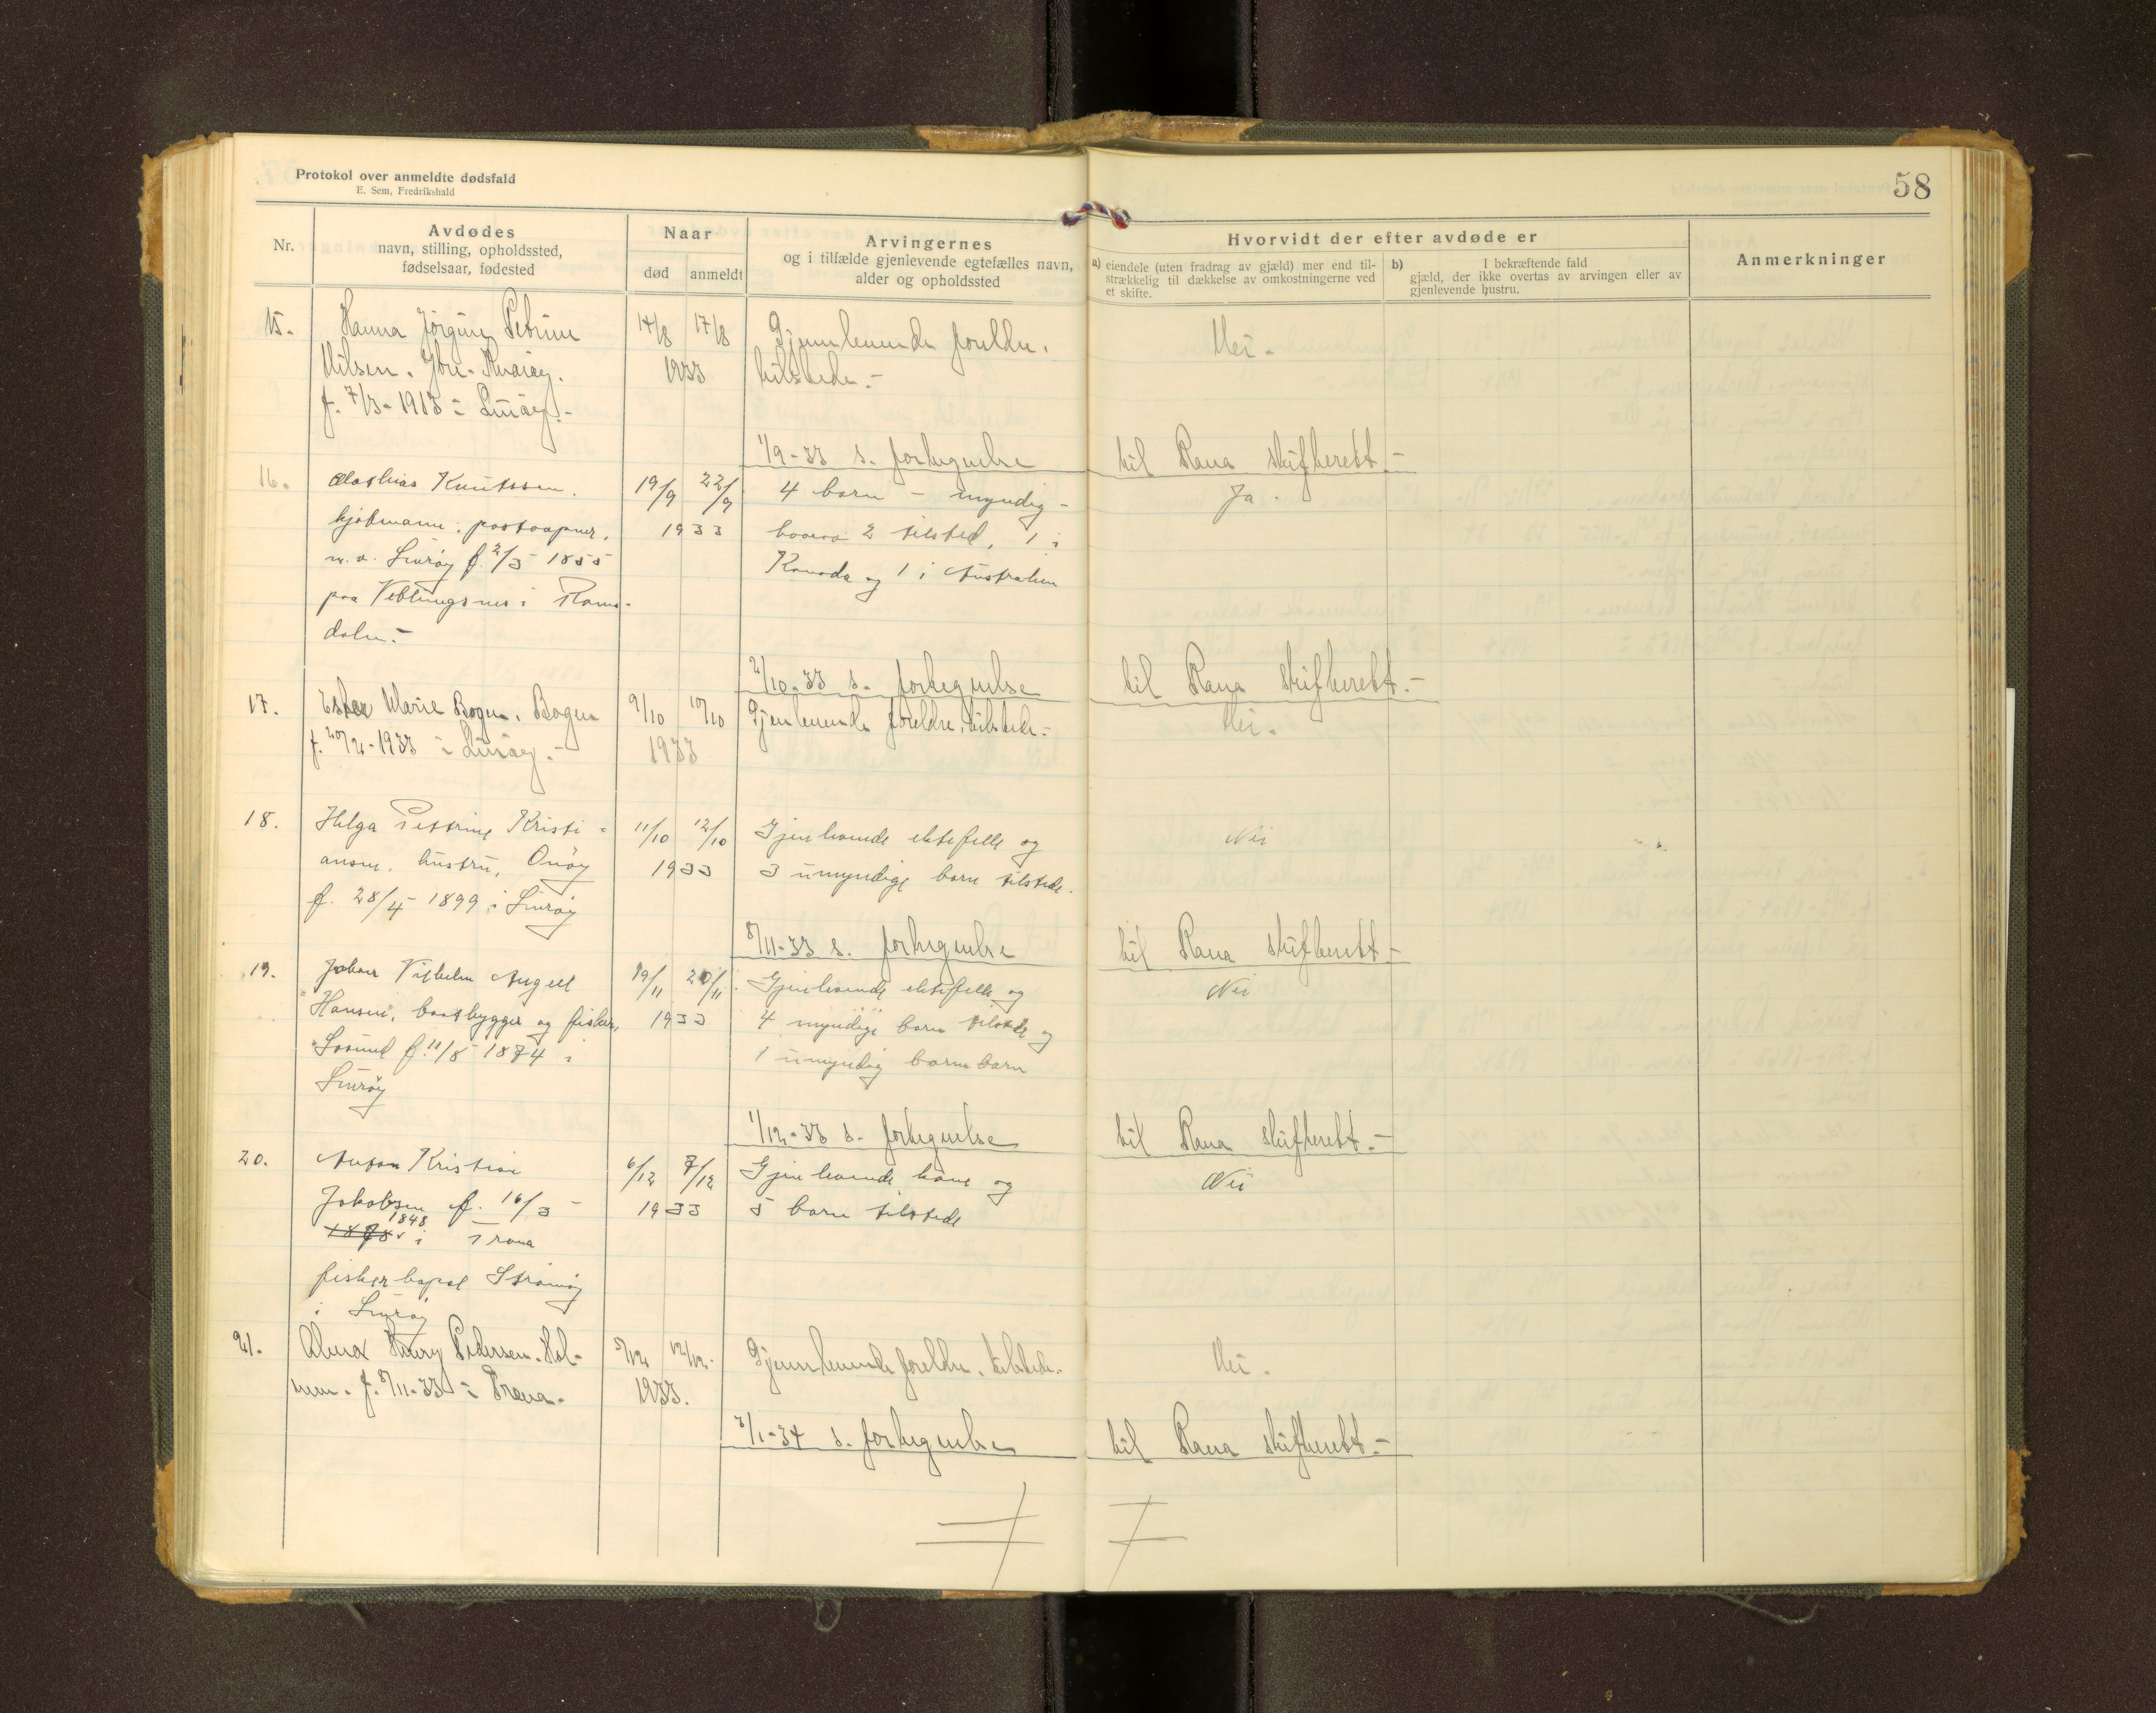 Protokol over anmeldte dødsfald
E. Sem, Fredrikshald
58
Nr.
Avdødes
navn, stilling, opholdssted,
fødselsaar, fødested
Naar
død anmeldt
Arvingernes
og i tilfælde gjenlevende egtefælles navn,
alder og opholdssted
Hvorvidt der efter avdøde er
a) eiendele (uten fradrag av gjæld) mer end til-
strækkelig til dækkelse av omkostningerne ved
et skifte.
b) I bekræftende fald
gjæld, der ikke overtas av arvingen eller av
gjenlevende hustru.
Anmerkninger
15. Hanna Jørgine Petrine 14/8 17/8 Gjennlevende foreldre, Nei.
Nilsen. Kvarøy. 1933 tilstede.-
f. 7/3-1913 i Lurøy.-
1/9-33 s. fortegnelse til Rana skifterett.-
16. Mathias Knutssen. 19/9 22/9 4 barn - myndig - Ja.
kjøbmann, postaapner, 1933 hvorav 2 tilsted, 1 i
m.v. Lurøy f. 2/5 1855 Kanada og 1 i Australien
paa Veblungsnes i Roms-
dalen.-
2/10-33 s. fortegnelse til Rana skifterett.-
17. Ester Marie Bogen, Bogen 9/10 10/10 Gjenlevende foreldre, tilstede.- Nei.
f. 20/2-1933 i Lurøy.- 1933
18. Helga Pettrine Kristi- 11/10 12/10 Gjenlevende ektefelle og Nei
ansen, hustru, Onøy 1933 3 umyndige barn tilstede.
f. 28/4 1899 i Lurøy
8/11-33 s. fortegnelse til Rana skifterett.-
19. Johan Vilhelm August 19/11 20/11 Gjenlevende ektefelle og Nei
Hansen, baatbygger og fisker, 1933 4 myndige barn tilstede og
Lovund f. 11/8 1874 i 1 umyndig barnebarn
Lurøy
1/12-33 s. fortegnelse til Rana skifterett.-
20. Anton Kristian 6/12 7/12 Gjenlevende kone og Nei
Jakobsen f. 16/3 - 1933 5 barn tilstede
1848
1878 i Træna
fisker bopæl Strømøy
i Lurøy
21. Alma Henny Pedersen. Hol- 5/12 12/12- Gjennlevende foreldre, tilstede. Nei.
men. f. 8/11-33 i Træna. 1933.
3/1-34 s. fortegnelse til Rana skifterett.-